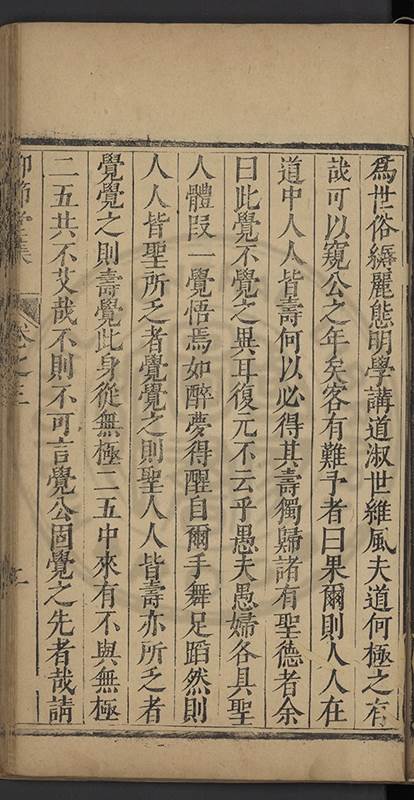 爲世俗縟麗態明學講道淑世維風夫道何極之有
哉可以窺公之年矣客有難予者曰果爾則人人在
道中人人皆壽何以必得其壽獨歸諸有聖德者余
曰此覺不覺之異耳復元不云乎愚夫愚婦各具聖
人體段一覺悟焉如醉夢得醒自爾手舞足蹈然則
人人皆聖所乏者覺覺之則聖人人皆壽亦所乏者
覺覺之則壽覺此身從無極二五中來有不與無極
二五共不艾哉不則不可言覺公固覺之先者哉請
仰節堂集 卷之三